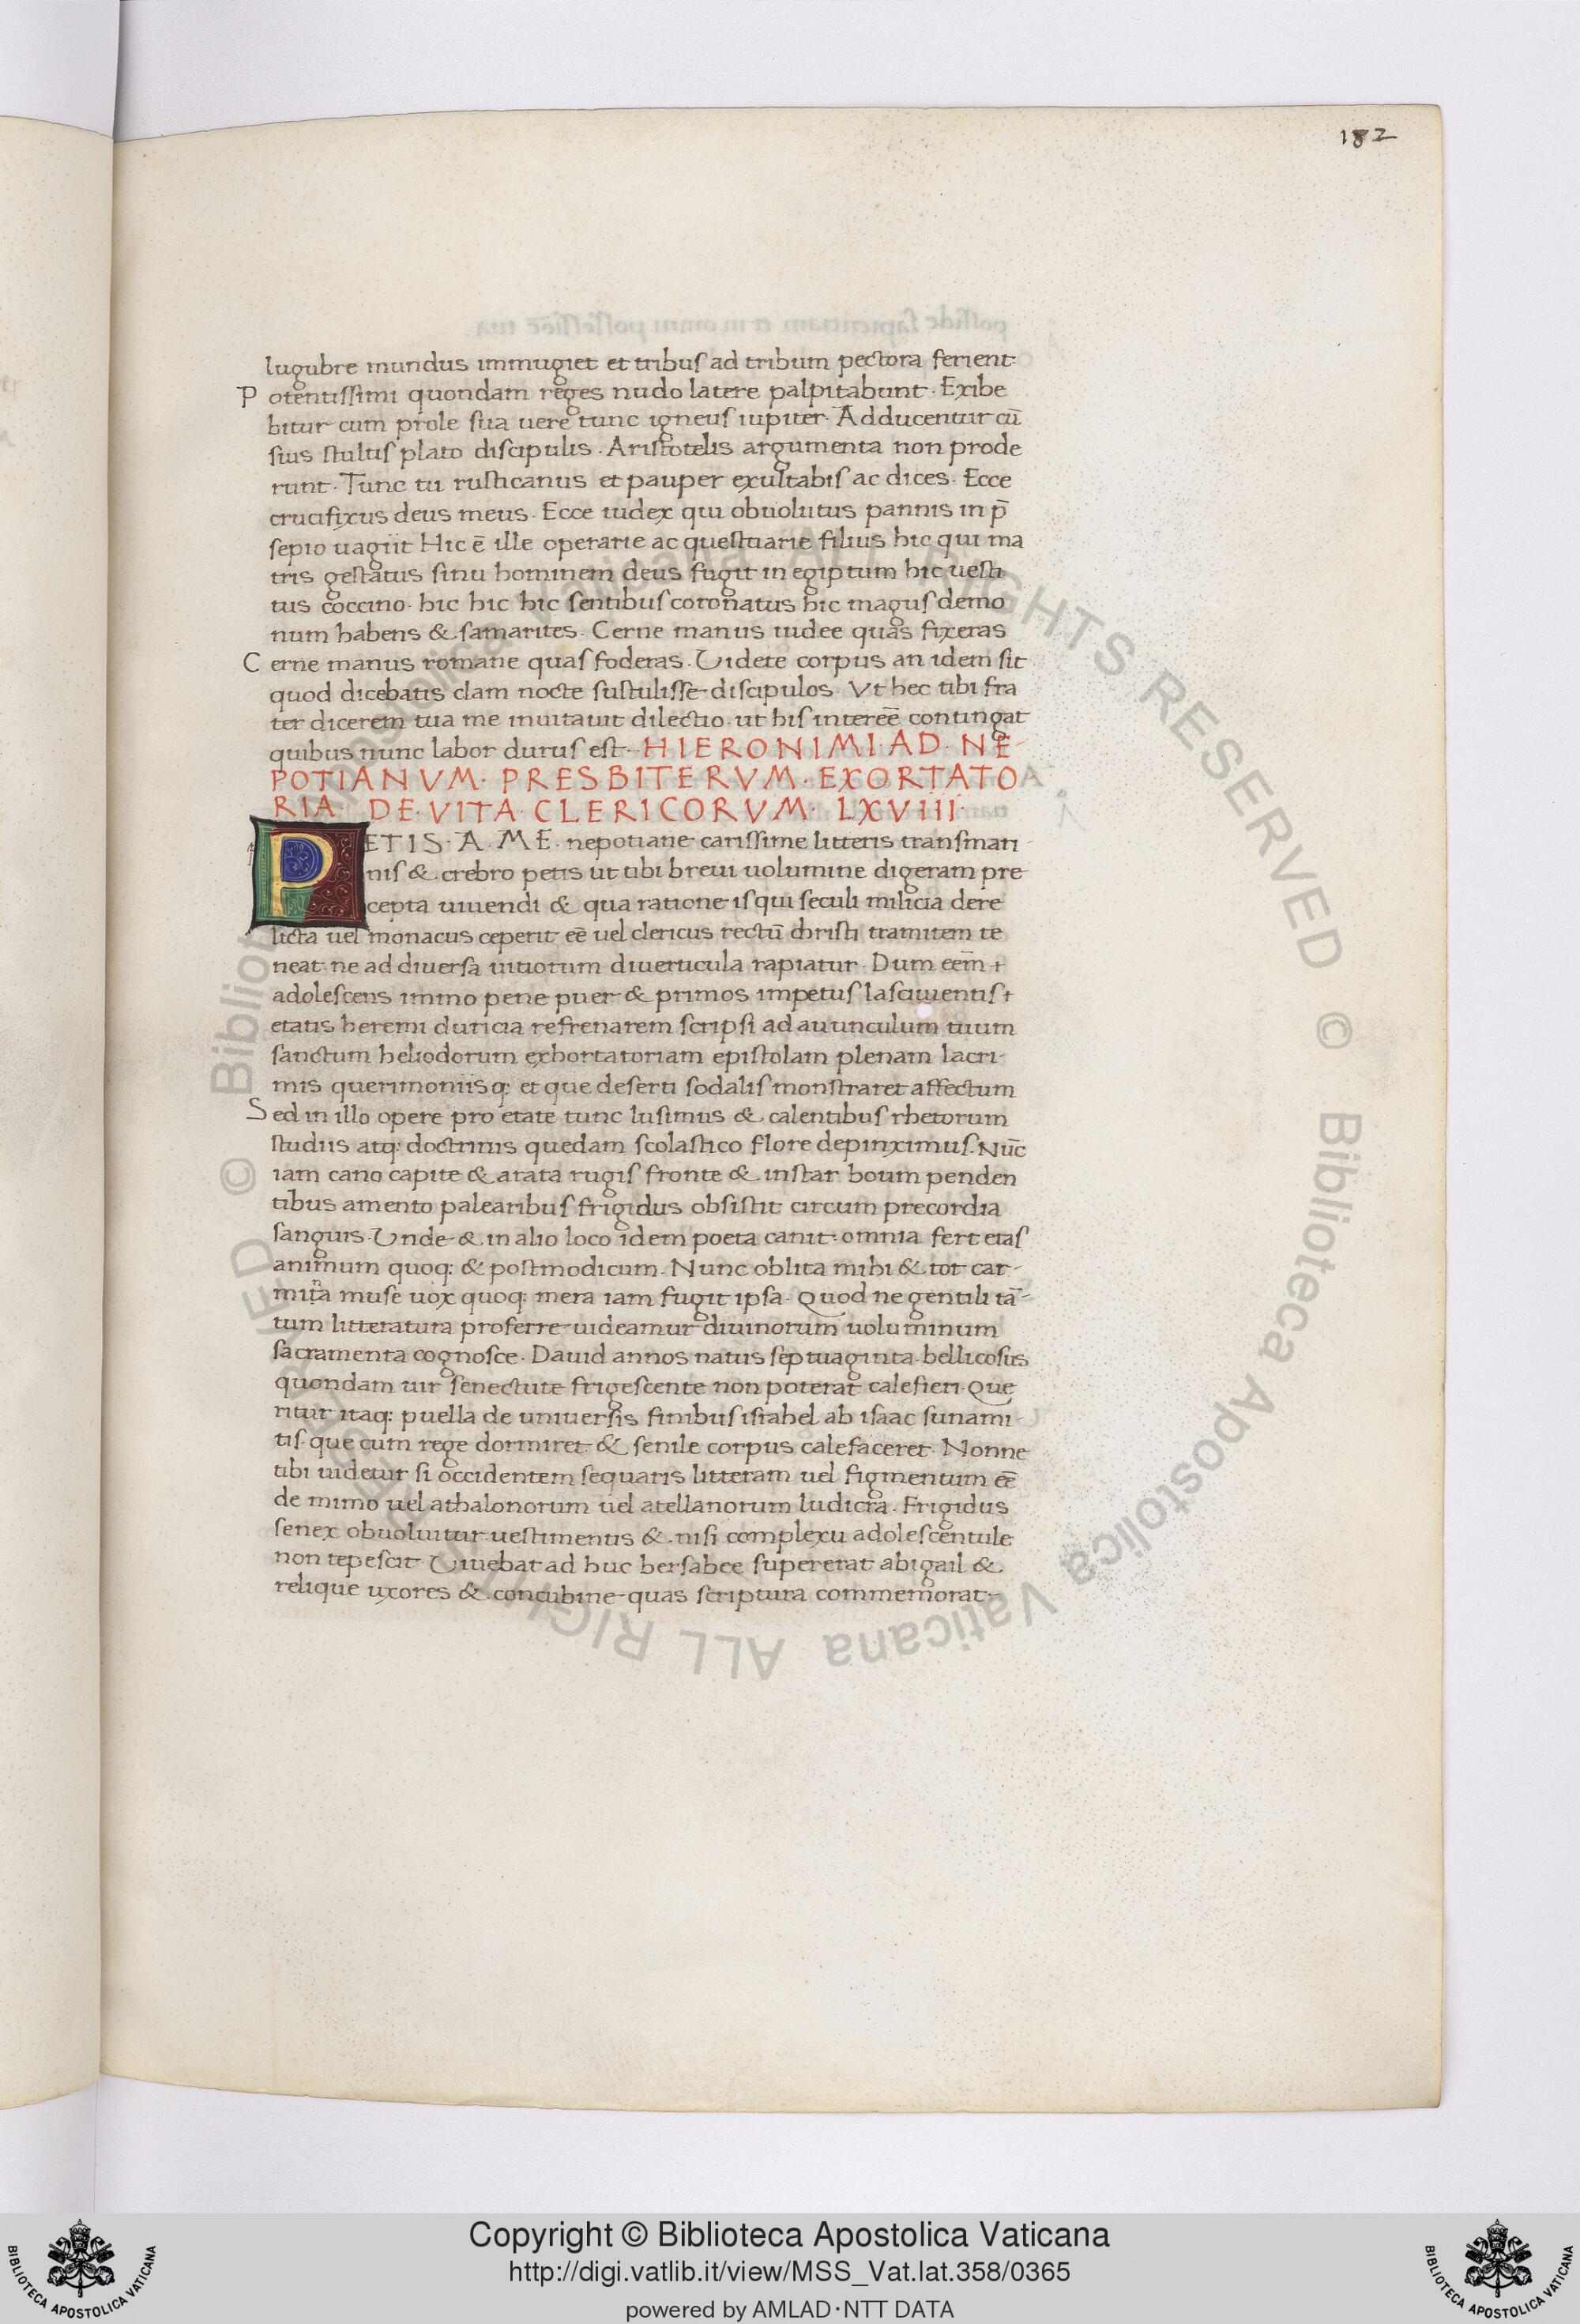 182
lugubre mundus immugiet et tribus ad tribum pectora ferient.
Potentissimi quondam reges nudo latere palpitabunt. Exibe
bitur cum prole sua uere tunc igneus iupiter. Adducentur cū
sius stultis plato discipulis. Aristotelis argumenta non prode
runt. Tunc tu rusticanus et pauper exultabis ac dices. Ecce
crucifixus deus meus. Ecce iudex qui obuolutus pannis in p̄
sepio uagiit Hic ē ille operarie ac questuarie filius hic qui ma
tris gestatus sinu hominem deus fugit in egiptum hic uesti
tus coccino. hic hic hic sentibus coronatus hic magus demo
num habens & samarites. Cerne manus iudee quas fixeras
Cerne manus romane quas foderas. Uidete corpus an idem sit
quod dicebatis clam nocte sustulisse discipulos. Vt hec tibi fra
ter dicerem tua me inuitauit dilectio. ut his intereē contingat
quibus nunc labor durus est. HIERONIMI. AD. NE-
POTIANVM. PRESBITERVM. EXORTATO
RIA. DE. VITA. CLERICORVM. LXVIIII.
PETIS. A. ME. nepotiane carissime litteris transmari
nis & crebro petis ut tibi breui uolumine digeram pre
cepta uiuendi & qua ratione is qui seculi milicia dere
licta uel monacus ceperit eē uel clericus rectū christi tramitem te
neat. ne ad diuersa uitiorum diuerticula rapiatur. Dum eēm
adolescens immo pene puer & primos impetus lasciuientis
etatis heremi duricia refrenarem scripsi ad auunculum tuum
sanctum heliodorum exhortatoriam epistolam plenam lacri-
mis querimoniisq; et que deserti sodalis monstraret affectum
Sed in illo opere pro etate tunc lusimus & calentibus rhetorum
studiis atq; doctrinis quedam scolastico flore depinximus. Nūc
iam cano capite & arata rugis fronte & instar boum penden
tibus amento palearibus frigidus obsistit circum precordia
sanguis. Unde & in alio loco idem poeta canit. omnia fert etas
animum quoq; & post modicum. Nunc oblita mihi & tot car-
mina muse uox quoq; mera iam fugit ipsa. Quod ne gentili tā-
tum litteratura proferre uideamur diuinorum uoluminum
sacramenta cognosce. Dauid annos natus septuaginta bellicosus
quondam uir senectute frigescente non poterat calefieri. Que
ritur itaq; puella de uniuersis finibus israhel ab isaac sunami
tis. que cum rege dormiret & senile corpus calefaceret. Nonne
tibi uidetur si occidentem sequaris litteram uel figmentum eē
de mimo uel athalonorum uel atellanorum ludicra. Frigidus
senex obuoluitur uestimentis & nisi complexu adolescentule
non tepescit. Uiuebat ad huc bersabee supererat abigail &
relique uxores & concubine quas scriptura commemorat
Copyright © Biblioteca Apostolica Vaticana
http://digi.vatlib.it/view/MSS_Vat.lat.358/0365
powered by AMLAD·NTT DATA
BIBLIOTECA APOSTOLICA VATICANA
BIBLIOTECA APOSTOLICA VATICANA
© Biblioteca Apostolica Vaticana ALL RIGHTS RESERVED © Biblioteca Apostolica Vaticana ALL RIGHTS RESERVED